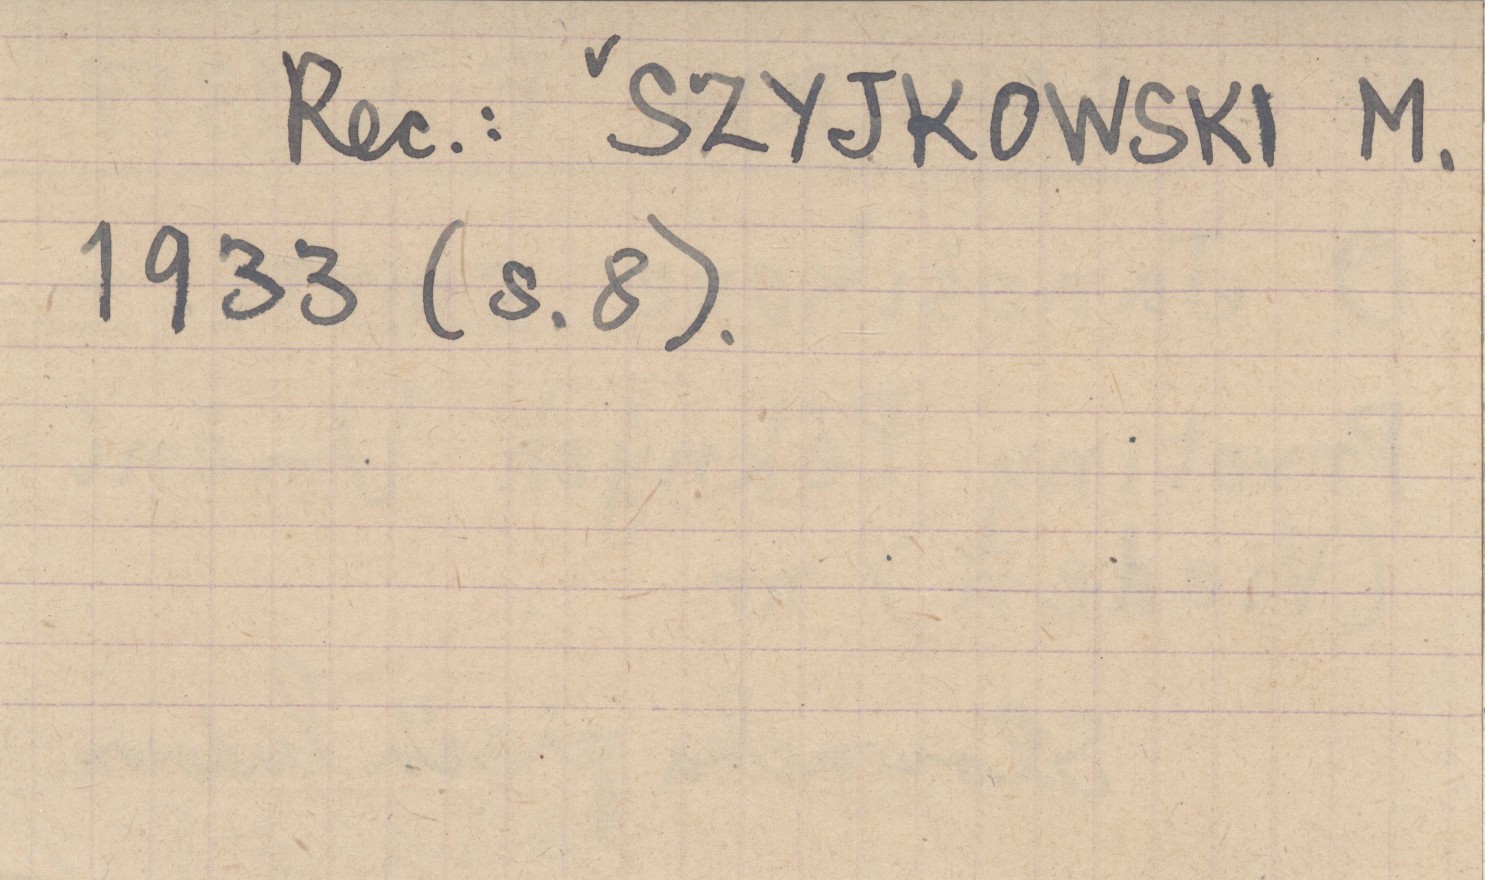 Rec.: ✓SZYJKOWSKI M.
1933 (s. 8).